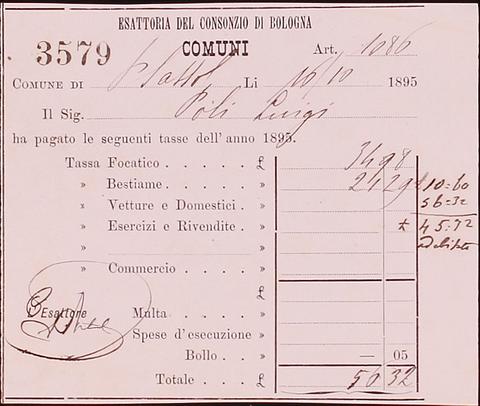 ESATTORIA DEL CONSONZIO DI BOLOGNA
3579 COMUNI Art. 1086
COMUNE DI Li 16/10 1895
Il Sig. Poli Luigi
ha pagato le seguenti tasse dell'anno 1895.
Tassa Focatico . . . . . £ 34 98
» Bestiame . . . . . » 21 29 10=60
» Vetture e Domestici . » 56=32
» Esercizi e Rivendite . » 45.72
» »
» Commercio . . . . »
£
L'Esattore Multa . . . . »
Spese d'esecuzione »
Bollo . . » — 05
Totale . . . £ 56 32